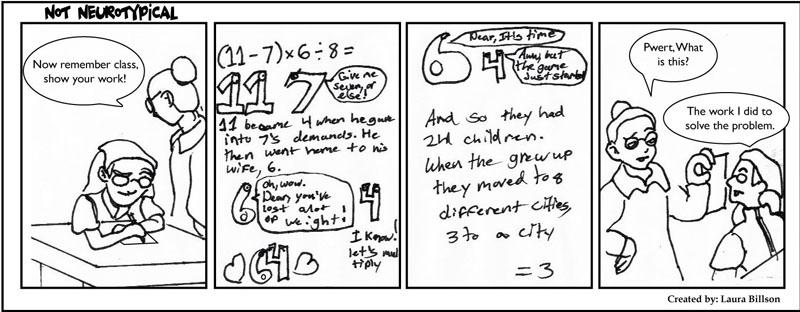 NOT NEUROTYPICAL
Now remember class,
show your work!
(11-7)×6÷8=
11 7
Give me
seven, or
else!
11 became 4 when he gave
into 7's demands. He
then went home to his
wife, 6.
6
Oh, wow.
Dear, you've
lost a lot
of weight!
4
I know!
let's mul
tiply
64
6
Dear, It's time
4
Aww, but
the game
Just started
And so they had
24 children.
When the grew up
they moved to 8
different cities,
3 to a city
=3
Pwert, What
is this?
The work I did to
solve the problem.
Created by: Laura Billson